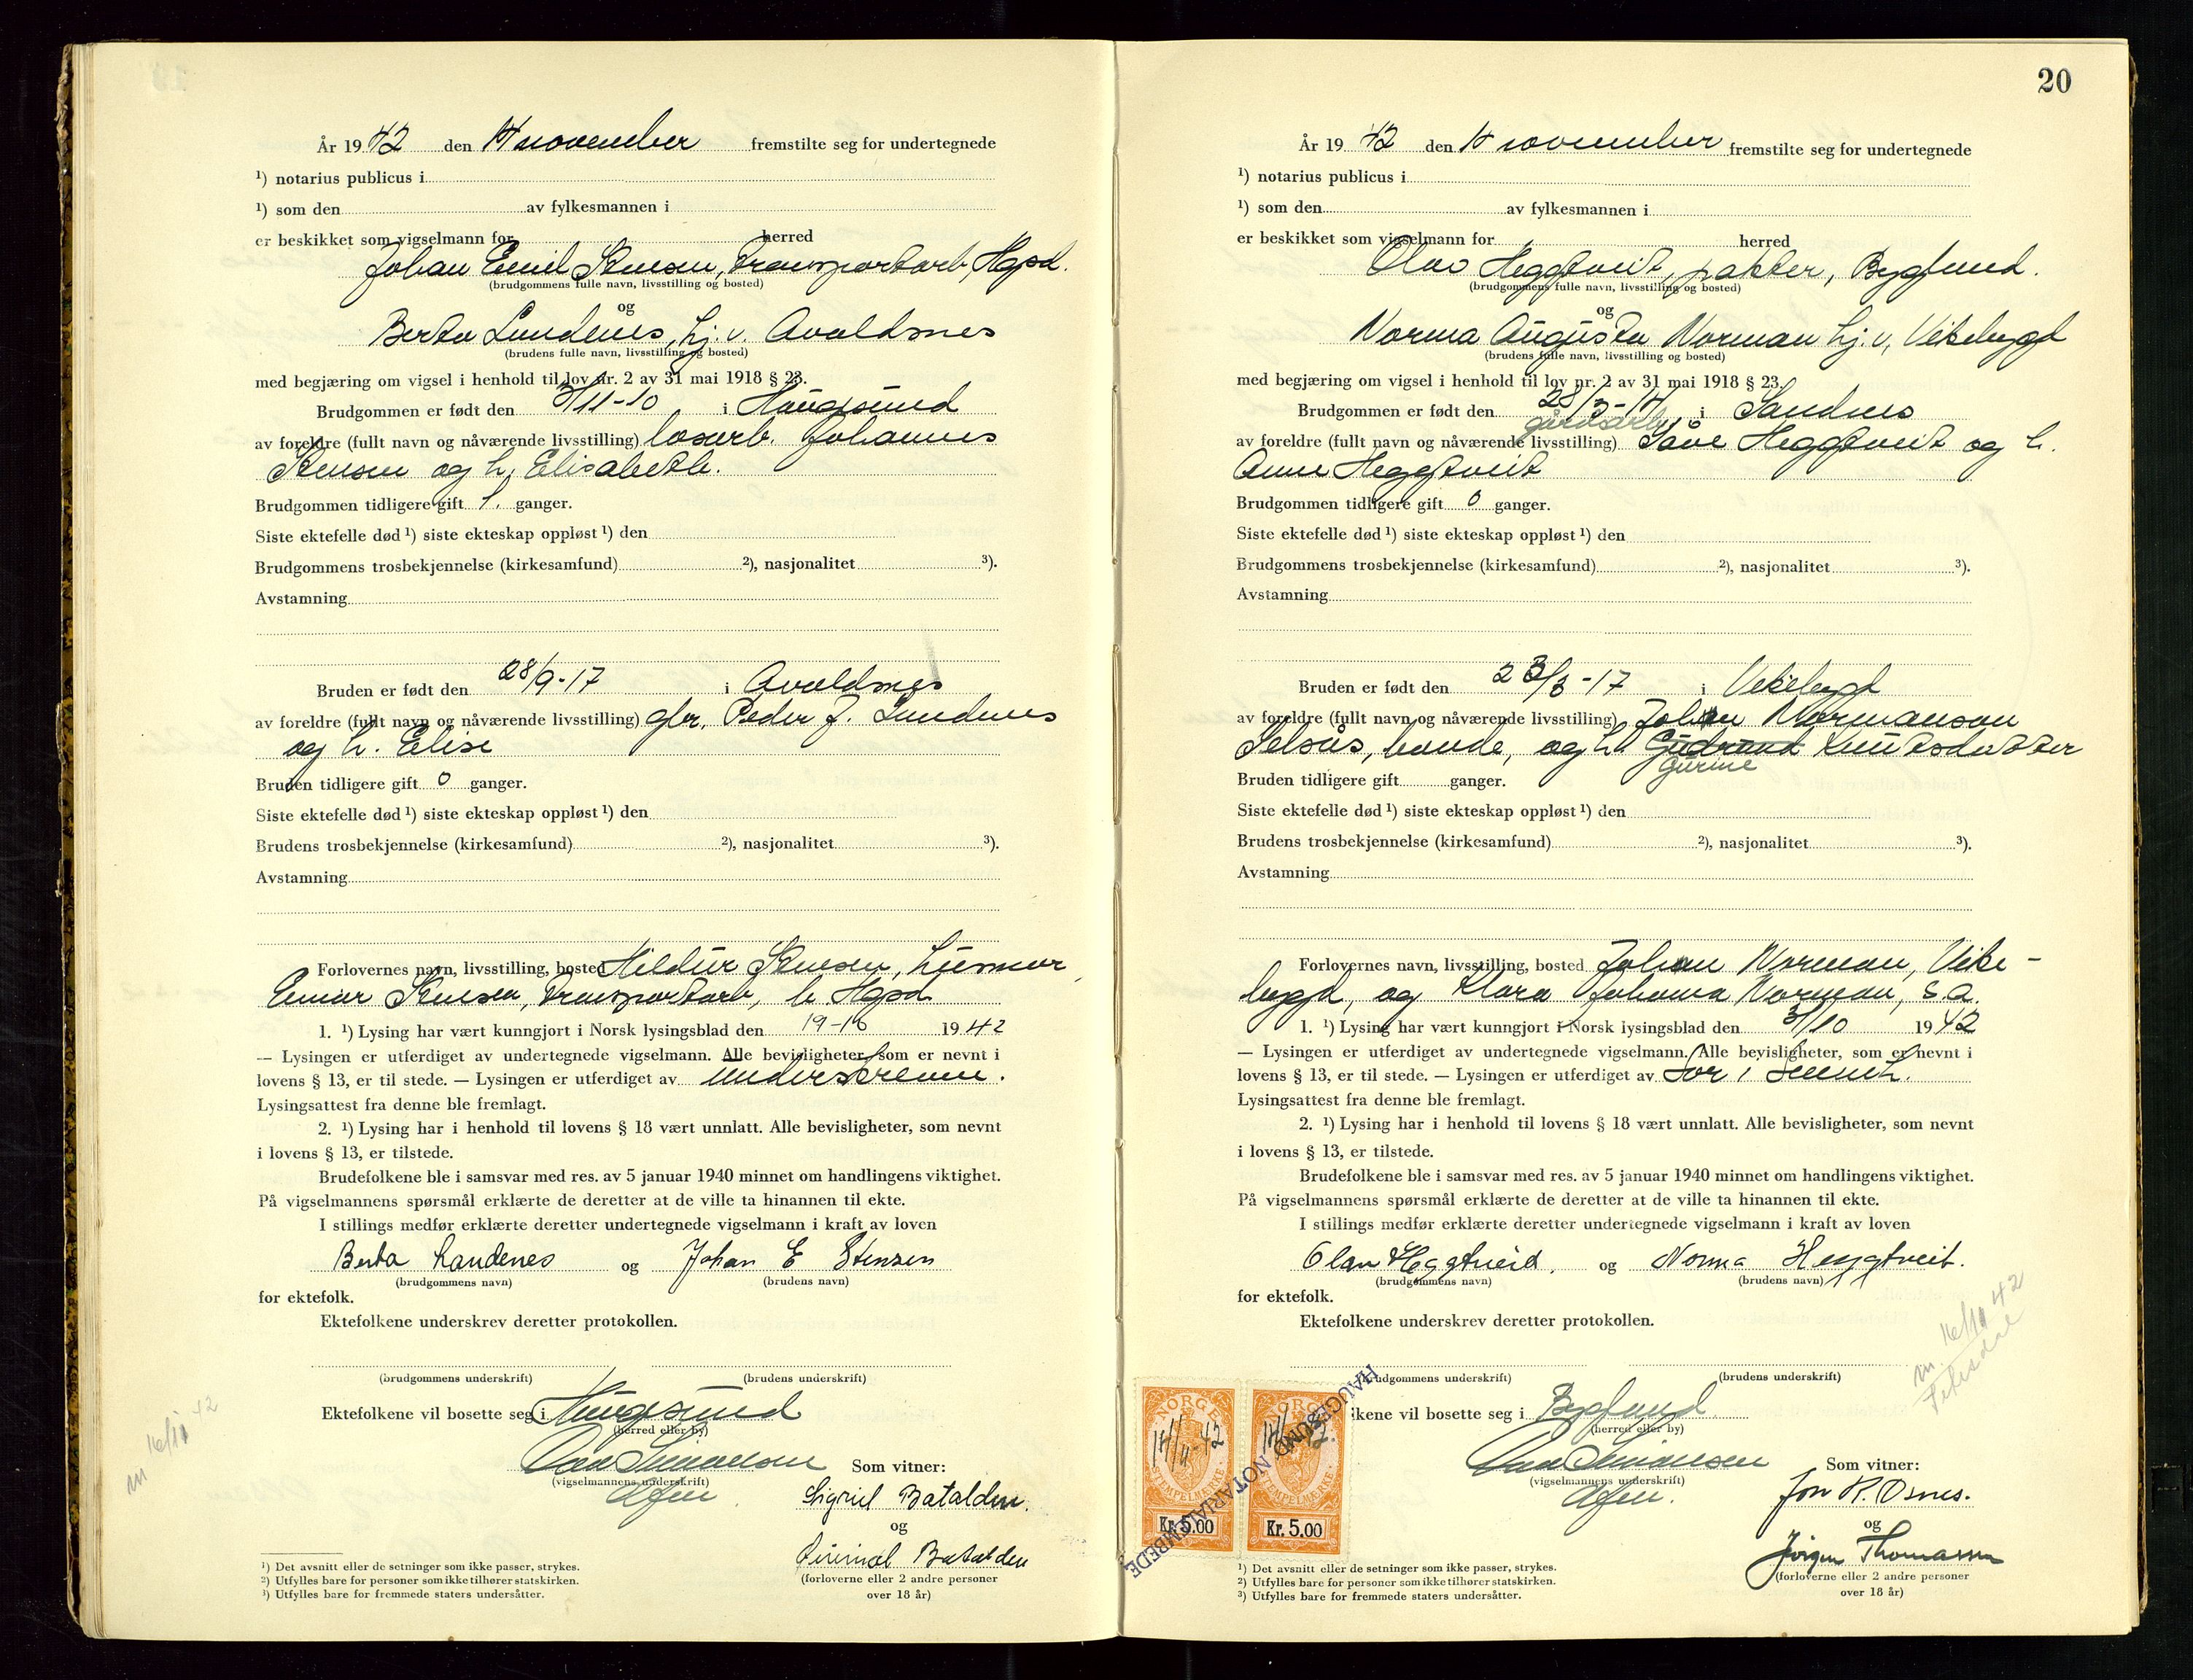 År 1942 den 14 november fremstilte seg for undertegnede
¹) notarius publicus i
¹) som den av fylkesmannen i
er beskikket som vigselmann for herred
Johan Emil Stensen, Transportarb, Hgsd.
(brudgommens fulle navn, livsstilling og bosted)
og
Berta Landenes, hj. v. Avaldsnes
(brudens fulle navn, livsstilling og bosted)
med begjæring om vigsel i henhold til lov nr. 2 av 31 mai 1918 § 23.
Brudgommen er født den 3/11-10 i Haugesund
av foreldre (fullt navn og nåværende livsstilling) losarb. Johannes
Stensen og h. Elisabeth.
Brudgommen tidligere gift 1. ganger.
Siste ektefelle død ¹) siste ekteskap oppløst ¹) den
Brudgommens trosbekjennelse (kirkesamfund) ²), nasjonalitet ³).
Avstamning
Bruden er født den 28/9-17 i Avaldsnes
av foreldre (fullt navn og nåværende livsstilling) gbr. Peder J. Landenes
og h. Elise
Bruden tidligere gift 0 ganger.
Siste ektefelle død ¹) siste ekteskap oppløst ¹) den
Brudens trosbekjennelse (kirkesamfund) ²), nasjonalitet ³).
Avstamning
Forlovernes navn, livsstilling, bosted Hildur Stensen, husmor,
Einar Stensen, Transportarb, b. Hgsd
1. ¹) Lysing har vært kunngjort i Norsk lysingsblad den 19-10 1942
— Lysingen er utferdiget av undertegnede vigselmann. Alle bevisligheter, som er nevnt i
lovens § 13, er til stede. — Lysingen er utferdiget av underskrevne.
Lysingsattest fra denne ble fremlagt.
2. ¹) Lysing har i henhold til lovens § 18 vært unnlatt. Alle bevisligheter, som nevnt
i lovens § 13, er tilstede.
Brudefolkene ble i samsvar med res. av 5 januar 1940 minnet om handlingens viktighet.
På vigselmannens spørsmål erklærte de deretter at de ville ta hinannen til ekte.
I stillings medfør erklærte deretter undertegnede vigselmann i kraft av loven
Berta Landenes og Johan E Stensen
(brudgommens navn) (brudens navn)
for ektefolk.
Ektefolkene underskrev deretter protokollen.
(brudgommens underskrift) (brudens underskrift)
Ektefolkene vil bosette seg i Haugesund
(herred eller by)
m 16/11 42
Simonsen Som vitner:
(vigselmannens underskrift)
Sigrid Batalden.
og
Batalden
(forloverne eller 2 andre personer
over 18 år)
¹) Det avsnitt eller de setninger som ikke passer, strykes.
²) Utfylles bare for personer som ikke tilhører statskirken.
³) Utfylles bare for fremmede staters undersåtter.
20
År 1942 den 14 november fremstilte seg for undertegnede
¹) notarius publicus i
¹) som den av fylkesmannen i
er beskikket som vigselmann for herred
Olav Heggtveit, pakter, Bygland.
(brudgommens fulle navn, livsstilling og bosted)
og
Norma Augusta Norman hj. v, Vikebygd
(brudens fulle navn, livsstilling og bosted)
med begjæring om vigsel i henhold til lov nr. 2 av 31 mai 1918 § 23.
Brudgommen er født den 28/3-14 i Sandnes
gårdsarb.
av foreldre (fullt navn og nåværende livsstilling) Heggtveit og h.
Anne Heggtveit
Brudgommen tidligere gift 0 ganger.
Siste ektefelle død ¹) siste ekteskap oppløst ¹) den
Brudgommens trosbekjennelse (kirkesamfund) ²), nasjonalitet ³).
Avstamning
Bruden er født den 23/3-17 i Vikebygd
av foreldre (fullt navn og nåværende livsstilling) Johan Normanson
Selsås, bonde, og h. Gudrund Knutsdatter
Gurine
Bruden tidligere gift ganger.
Siste ektefelle død ¹) siste ekteskap oppløst ¹) den
Brudens trosbekjennelse (kirkesamfund) ²), nasjonalitet ³).
Avstamning
Forlovernes navn, livsstilling, bosted Johan Norman, Vike-
bygd, og Klara Johanna Norman, s.a.
1. ¹) Lysing har vært kunngjort i Norsk lysingsblad den 3/10 1942
— Lysingen er utferdiget av undertegnede vigselmann. Alle bevisligheter, som er nevnt i
lovens § 13, er til stede. — Lysingen er utferdiget av
Lysingsattest fra denne ble fremlagt.
2. ¹) Lysing har i henhold til lovens § 18 vært unnlatt. Alle bevisligheter, som nevnt
i lovens § 13, er tilstede.
Brudefolkene ble i samsvar med res. av 5 januar 1940 minnet om handlingens viktighet.
På vigselmannens spørsmål erklærte de deretter at de ville ta hinannen til ekte.
I stillings medfør erklærte deretter undertegnede vigselmann i kraft av loven
Olav Heggtveid. og Norma Heggtveit.
(brudgommens navn) (brudens navn)
for ektefolk.
Ektefolkene underskrev deretter protokollen.
m. 16/11 42
(brudgommens underskrift) (brudens underskrift)
ikene vil bosette seg i Bygland
(herred eller by)
Simonsen Som vitner:
(vigselmannens underskrift)
Jon R. Osnes.
og
Jörgen Thomassen
(forloverne eller 2 andre personer
over 18 år)
NORGE
14/11-42
STEMPELMERKE
Kr. 5.00
NORGE
STEMPELMERKE
Kr. 5.00
HAUGESUND NOTARIALEMBEDE
¹) Det avsnitt eller de setninger som ikke passer, strykes.
²) Utfylles bare for personer som ikke tilhører statskirken.
³) Utfylles bare for fremmede staters undersåtter.